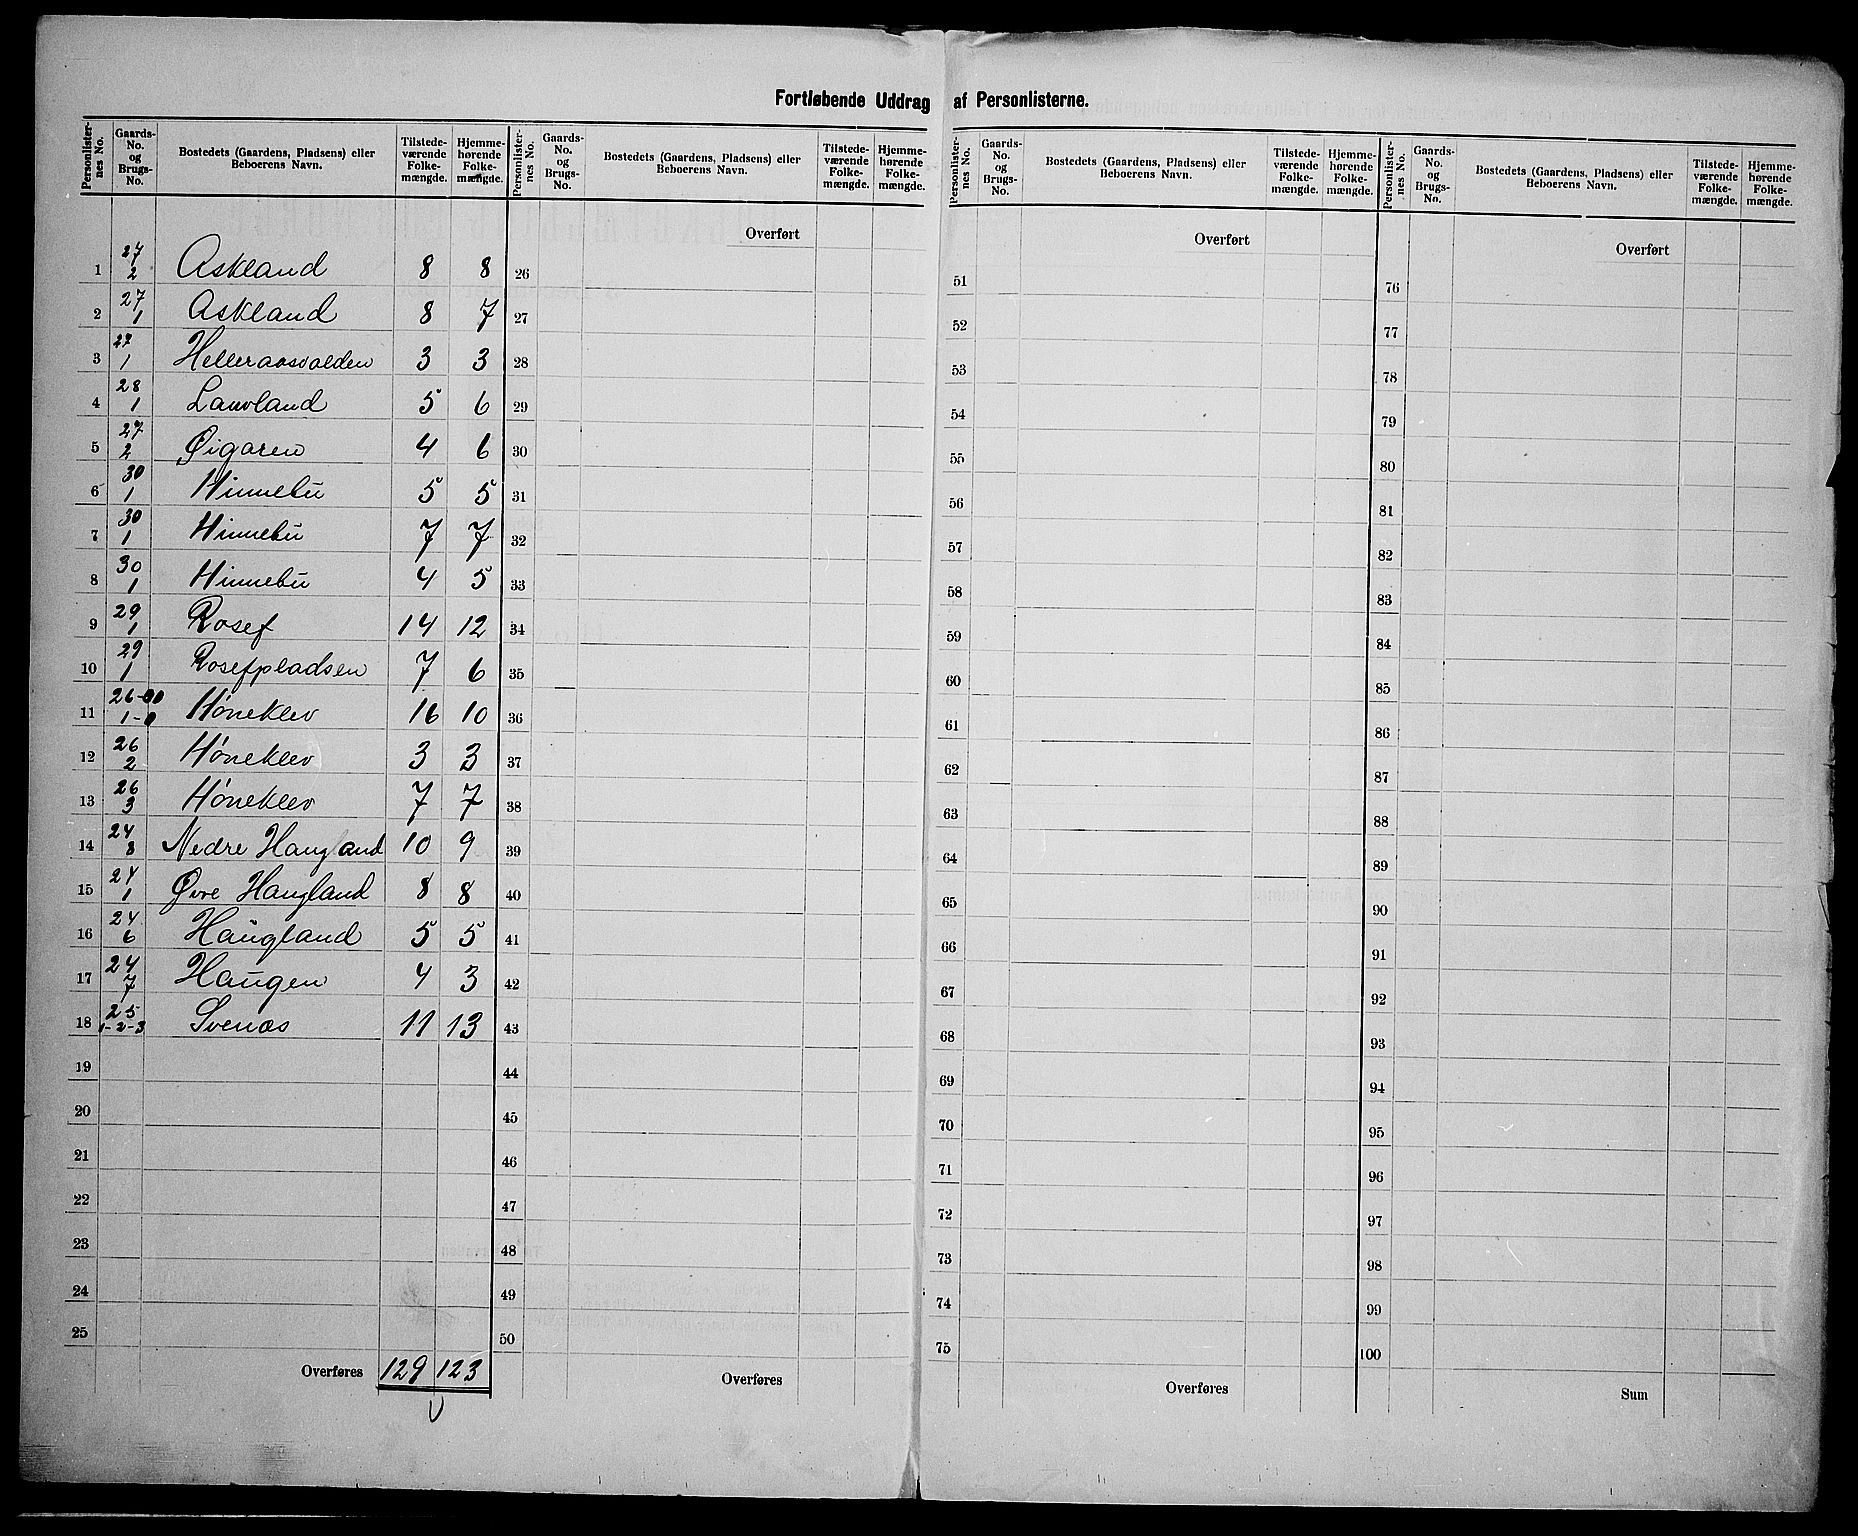 Fortløbende Uddrag af Personlisterne.
Personlister-nes No. | Gaards-No. og Brugs-No. | Bostedets (Gaardens, Pladsens) eller Beboerens Navn. | Tilstede-værende Folke-mængde. | Hjemme-hørende Folke-mængde.
1 | 27 2 | Askland | 8 | 8
2 | 27 1 | Askland | 8 | 7
3 | 27 1 | Helleraasvolden | 3 | 3
4 | 28 1 | Lauvland | 5 | 6
5 | 27 2 | Øigaren | 4 | 6
6 | 30 1 | Hinnebu | 5 | 5
7 | 30 1 | Hinnebu | 7 | 7
8 | 30 1 | Hinnebu | 4 | 5
9 | 29 1 | Rosef | 14 | 12
10 | 29 1 | Rosefpladsen | 7 | 6
11 | 26 1 | Høneklev | 16 | 10
12 | 26 2 | Høneklev | 3 | 3
13 | 26 3 | Høneklev | 7 | 7
14 | 24 8 | Nedre Haugland | 10 | 9
15 | 24 1 | Øvre Haugland | 8 | 8
16 | 24 6 | Haugland | 5 | 5
17 | 24 7 | Haugen | 4 | 3
18 | 25 1-2-3 | Svenæs | 11 | 13
19
20
21
22
23
24
25
Overføres | 129 | 123
Personlister-nes No. | Gaards-No. og Brugs-No. | Bostedets (Gaardens, Pladsens) eller Beboerens Navn. | Tilstede-værende Folke-mængde. | Hjemme-hørende Folke-mængde.
Overført
26
27
28
29
30
31
32
33
34
35
36
37
38
39
40
41
42
43
44
45
46
47
48
49
50
Overføres
Personlister-nes No. | Gaards-No. og Brugs-No. | Bostedets (Gaardens, Pladsens) eller Beboerens Navn. | Tilstede-værende Folke-mængde. | Hjemme-hørende Folke-mængde.
Overført
51
52
53
54
55
56
57
58
59
60
61
62
63
64
65
66
67
68
69
70
71
72
73
74
75
Overføres
Personlister-nes No. | Gaards-No. og Brugs-No. | Bostedets (Gaardens, Pladsens) eller Beboerens Navn. | Tilstede-værende Folke-mængde. | Hjemme-hørende Folke-mængde.
Overført
76
77
78
79
80
81
82
83
84
85
86
87
88
89
90
91
92
93
94
95
96
97
98
99
100
Sum